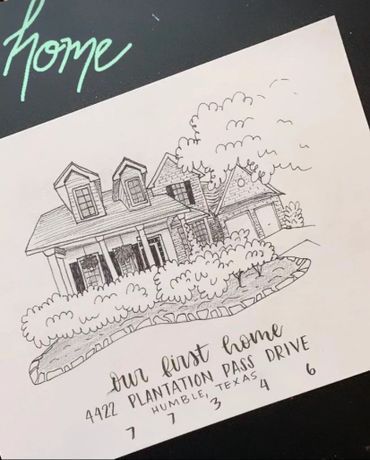 home
our first home
4422 PLANTATION PASS DRIVE
HUMBLE, TEXAS
7 7 3 4 6